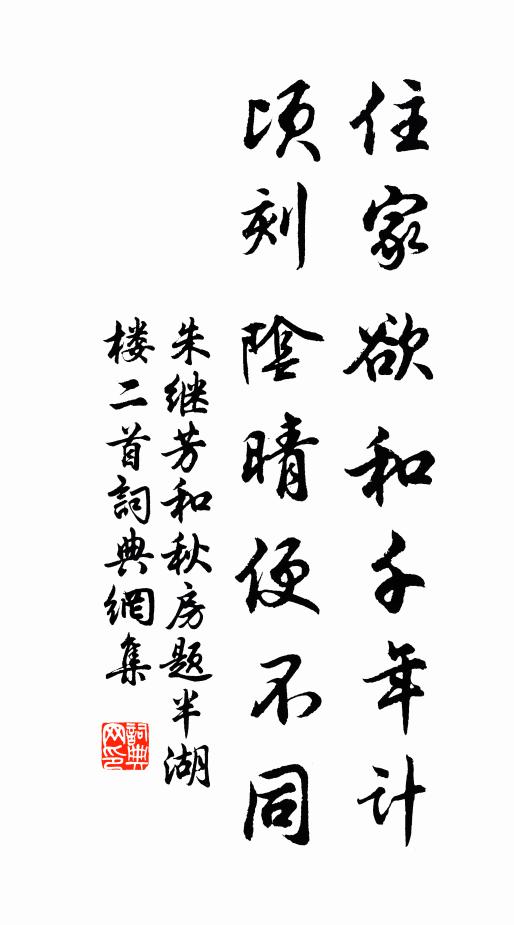 住家欲和千年计
顷刻陰晴便不同
朱继芳和秋房题半湖
楼二首詞典網集
詞典
网印